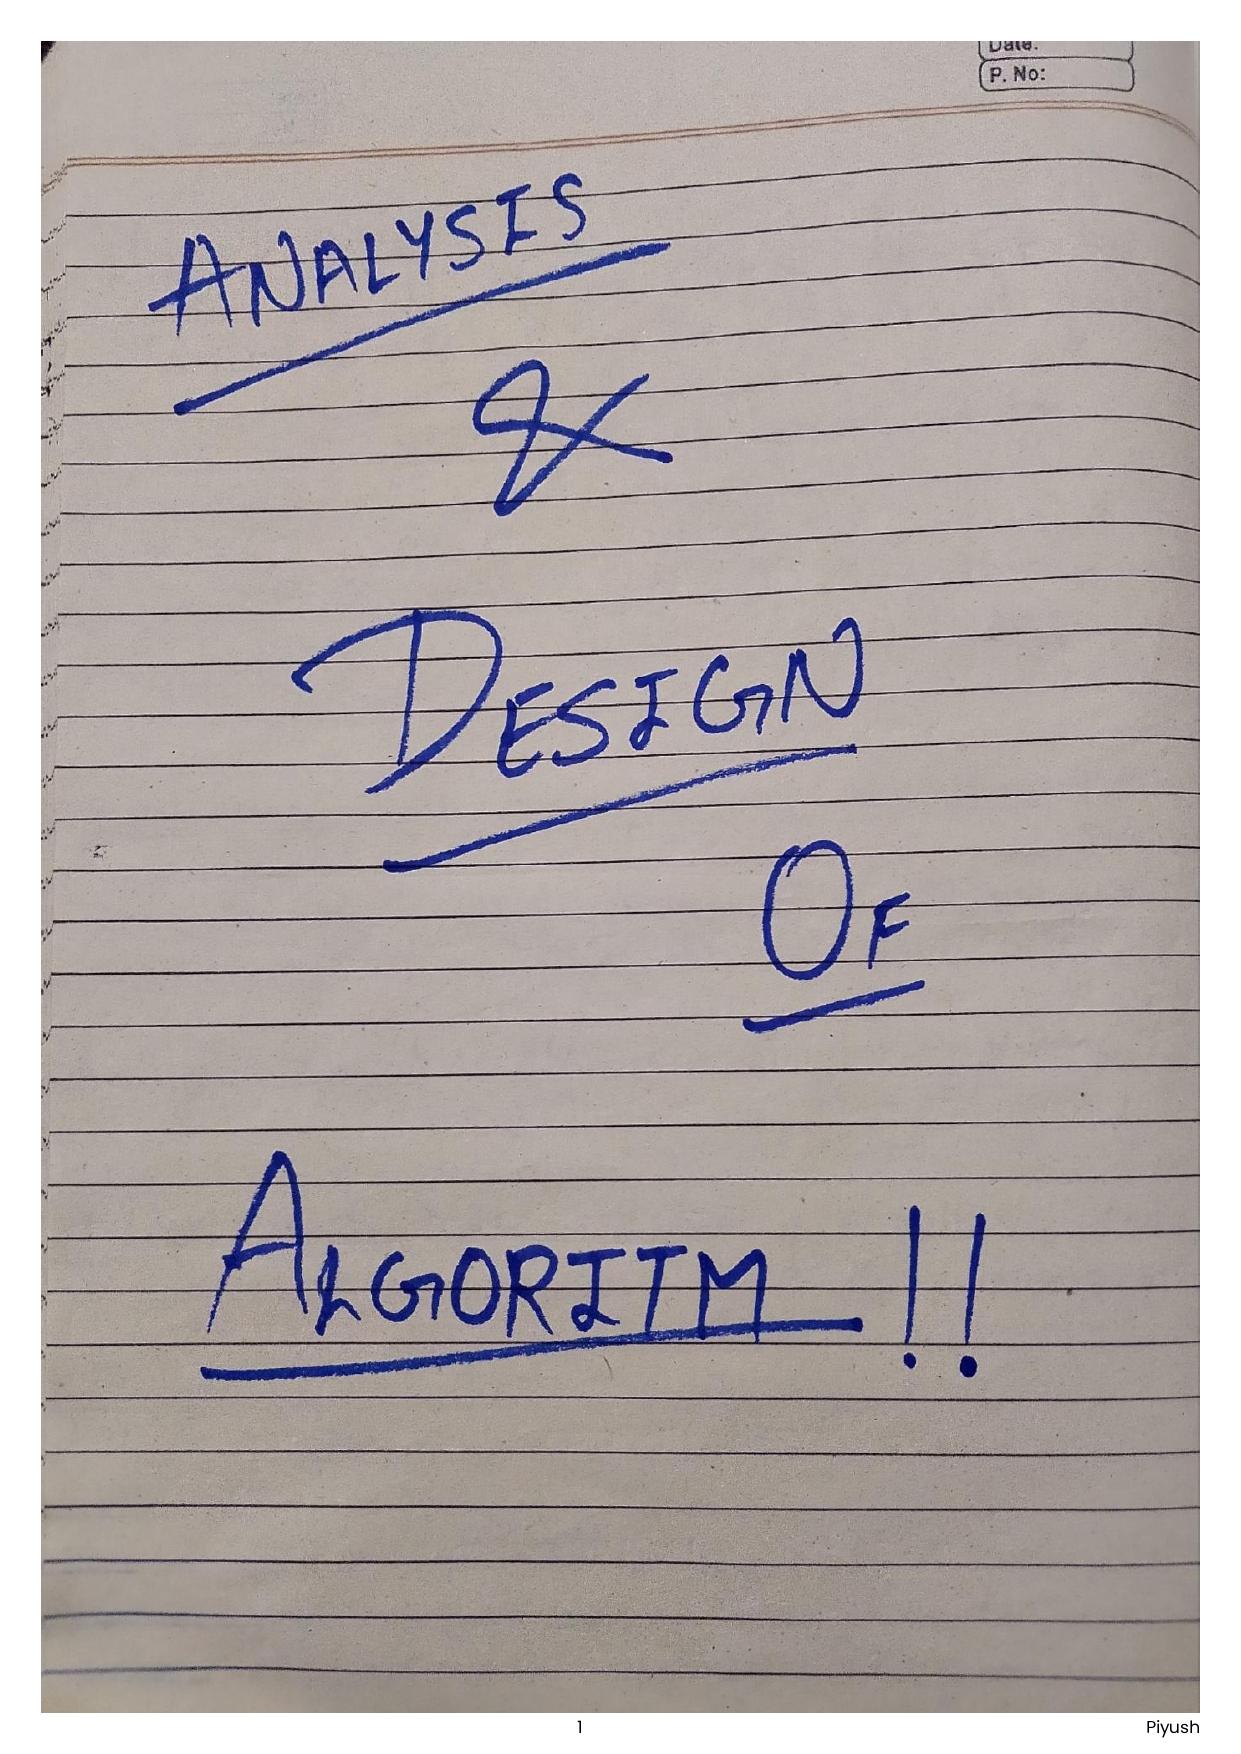 Date:
P. No:
ANALYSIS
&
DESIGN
OF
ALGORITM !!
1
Piyush